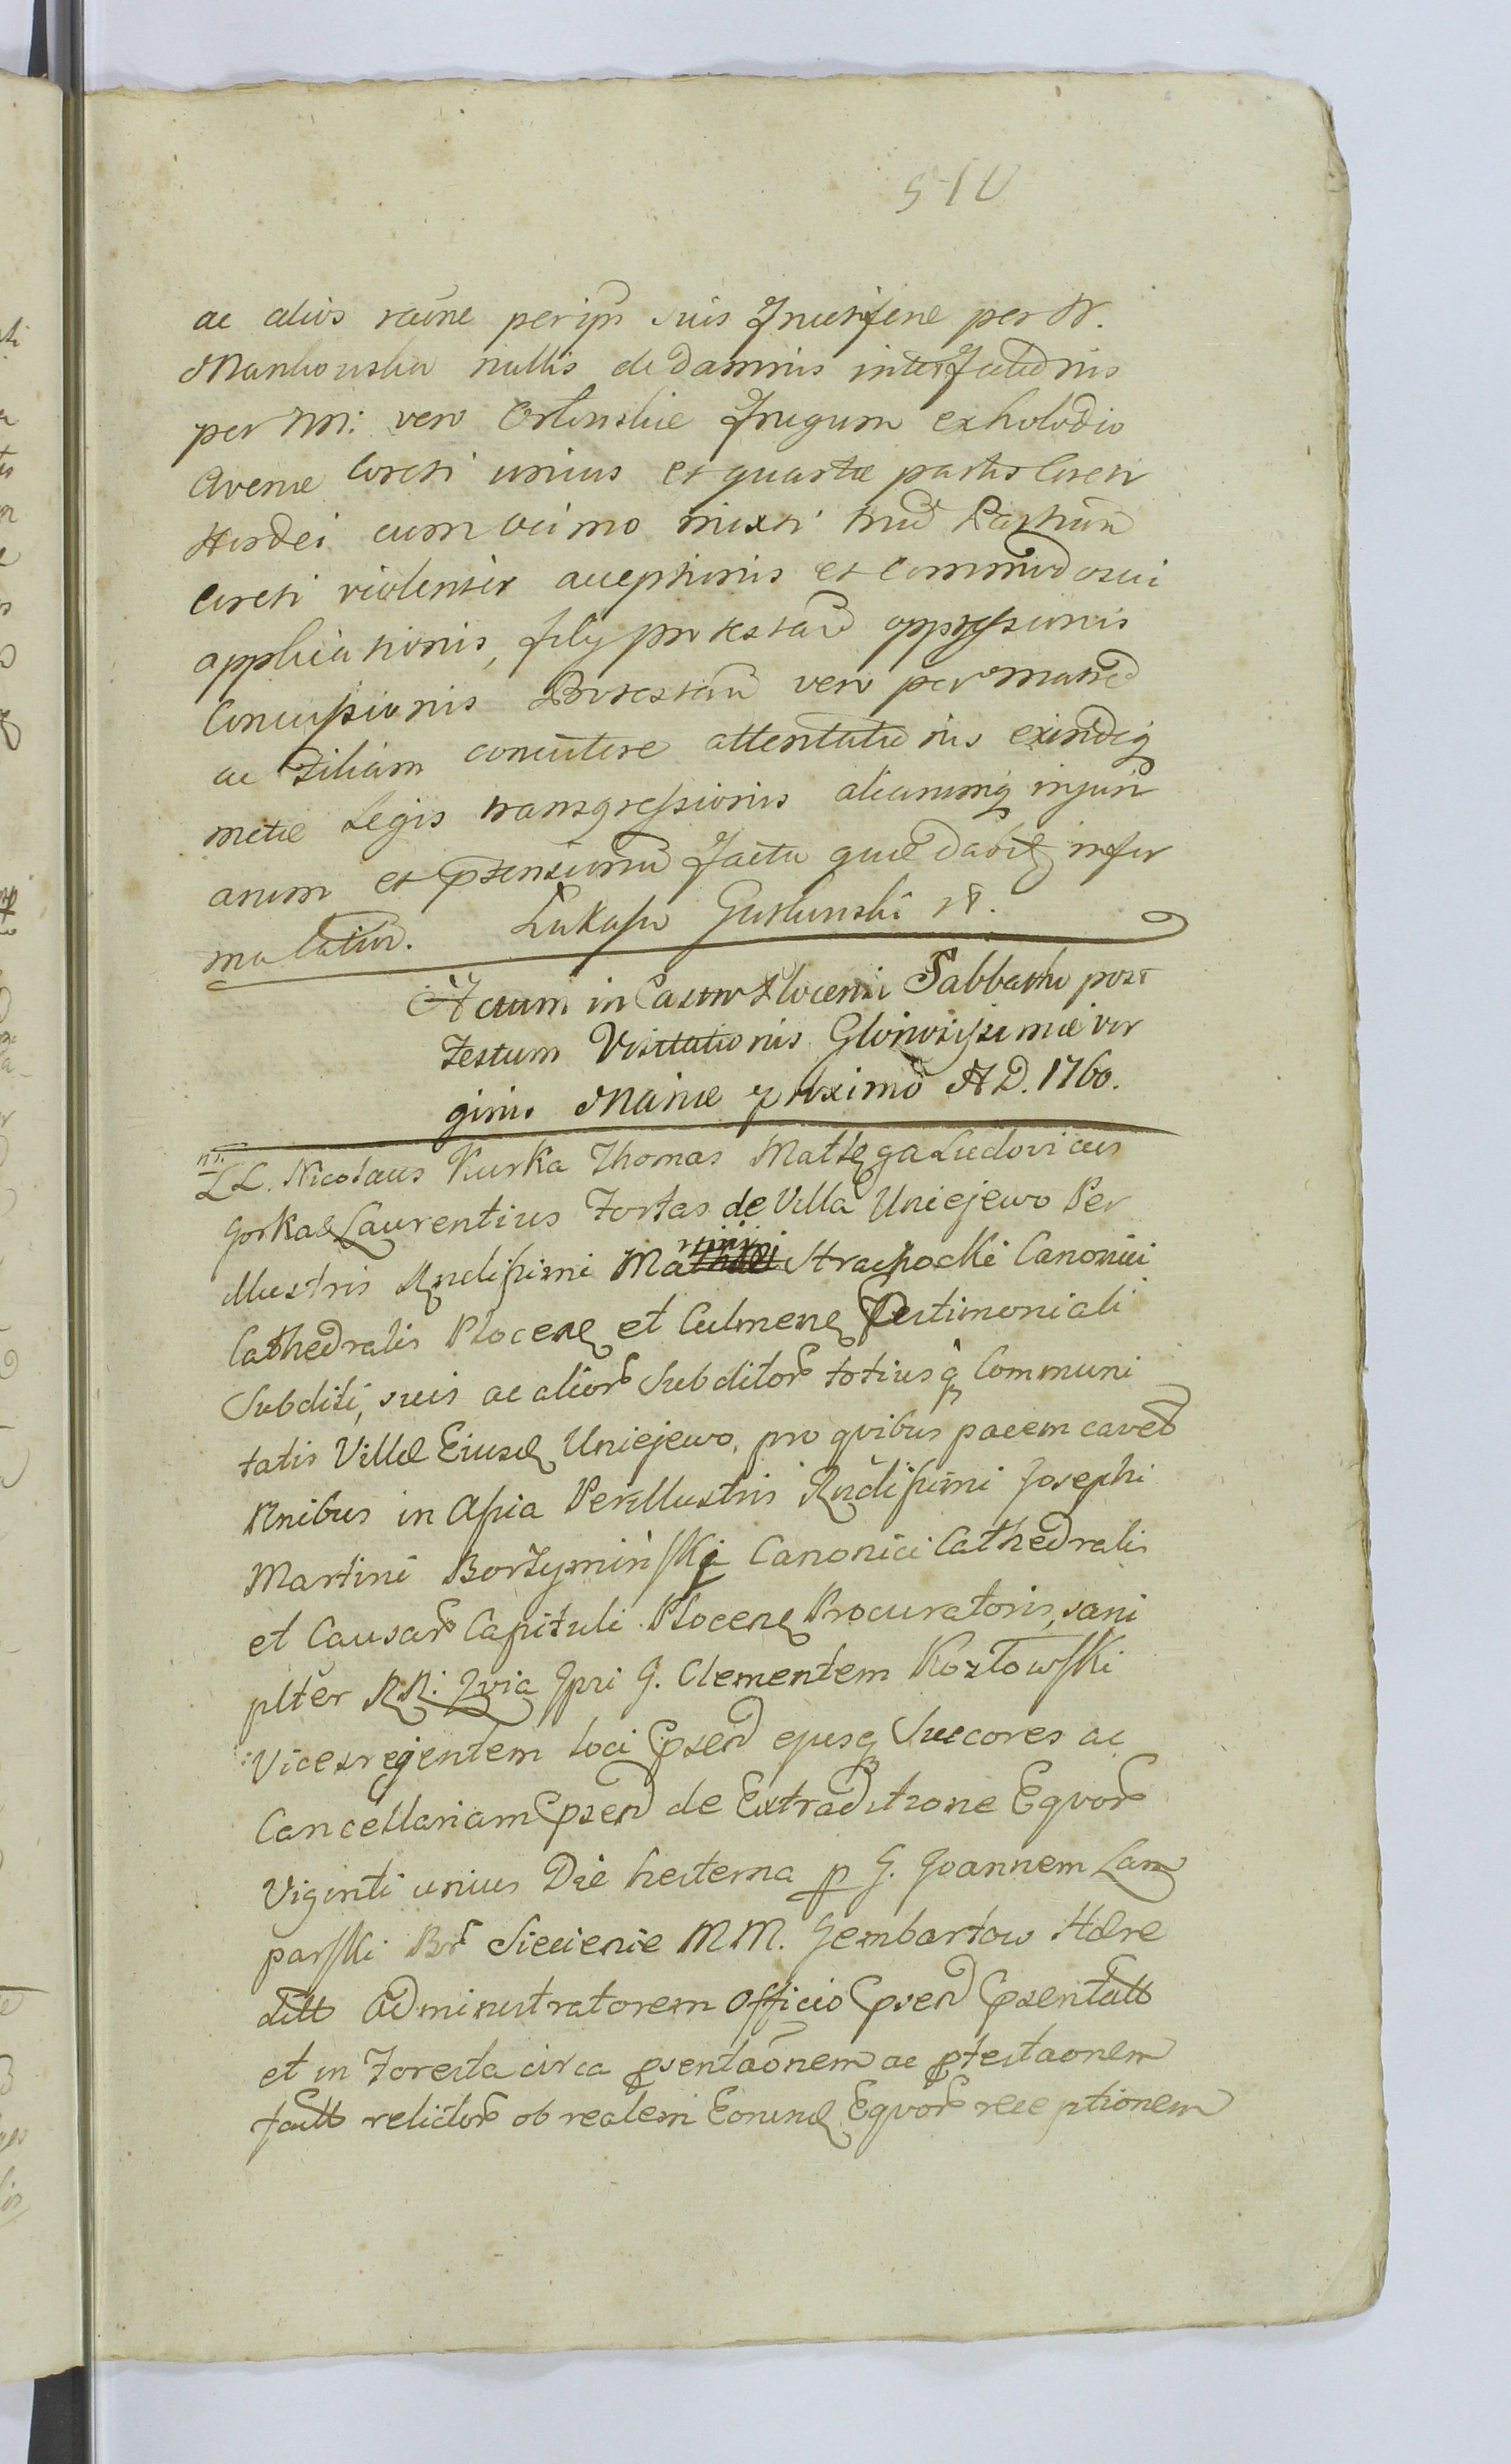 510
ac alios raōne per ipm suis Fruct fere per N.
Mankowska nullis de damnis inter
per M: vero Orlinskie Frugum ex holodio
Avenæ Coreti unius et quartæ partis Coreti
Hordei cum mixti
Coreti violenter acceptionis et Commodo sui
applicationis, Filÿ protestan oppressionis
Concussionis Protestan vero per
ac Filiam concutere attentationis exindeq
metæ Legis transgressionis aliarumq injuri
arum et ptensionū facta quæ informa
matatur. Lukasz Guslinski
Actum in Castro Plocensi Sabbatho post
Festum Visitationis Gloriosissimæ Vir
ginis Mariæ proximo A D. 1760.
LL. Nicolaus Kurka Thomas Ludovicus
Gorka Laurentius Fortas de Villa Uniejewo Per
Illustris Rndissimi Strachocki Canonici
Cathedralis Plocen et Culmen Testimoniali
Subditi, suis ac alior Subditor totiusq Communi
tatis Villæ Eiusd Uniejewo, pro quibus pacem caved
Rnibus in Assia Perillustris Rndissimi Josephi
Martini Borzyminski Canonici Cathedralis
et Causar Capituli Plocen Procuratoris, sani
plter RR: Qvia Ipsi G. Clementem Kozłowski
Vicesregentem loci psen ejusq Succores ac
Cancellariam psen de Extraditione Eqvor
Viginti unius Die hesterna p G. Joannem Lam
parski Br Siecienie MM. Gembartow Hære
ditt Administratorem Officio psen psentatt
et in Foresta circa psentaōnem ac ptestaonem
fatt relictor ob realem Eorund Eqvor receptionem